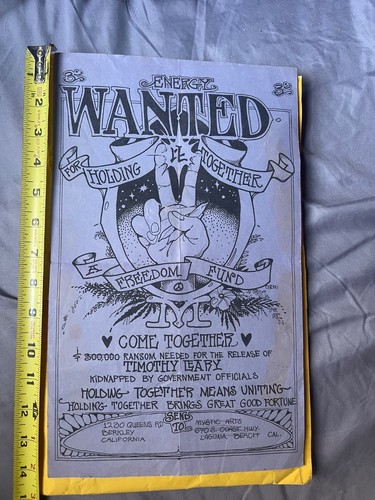 ENERGY
WANTED
FOR HOLDING TOGETHER
A FREEDOM FUND
COME TOGETHER
$300,000 RANSOM NEEDED FOR THE RELEASE OF
TIMOTHY LEARY
KIDNAPPED BY GOVERNMENT OFFICIALS
HOLDING TOGETHER MEANS UNITING
HOLDING TOGETHER BRINGS GREAT GOOD FORTUNE
SEND TO
1230 QUEENS RD
BERKLEY
CALIFORNIA
MYSTIC ARTS
COAST HWY.
LAGUNA BEACH CAL.
1
2
3
4
5
6
7
8
9
10
11
12
13
14